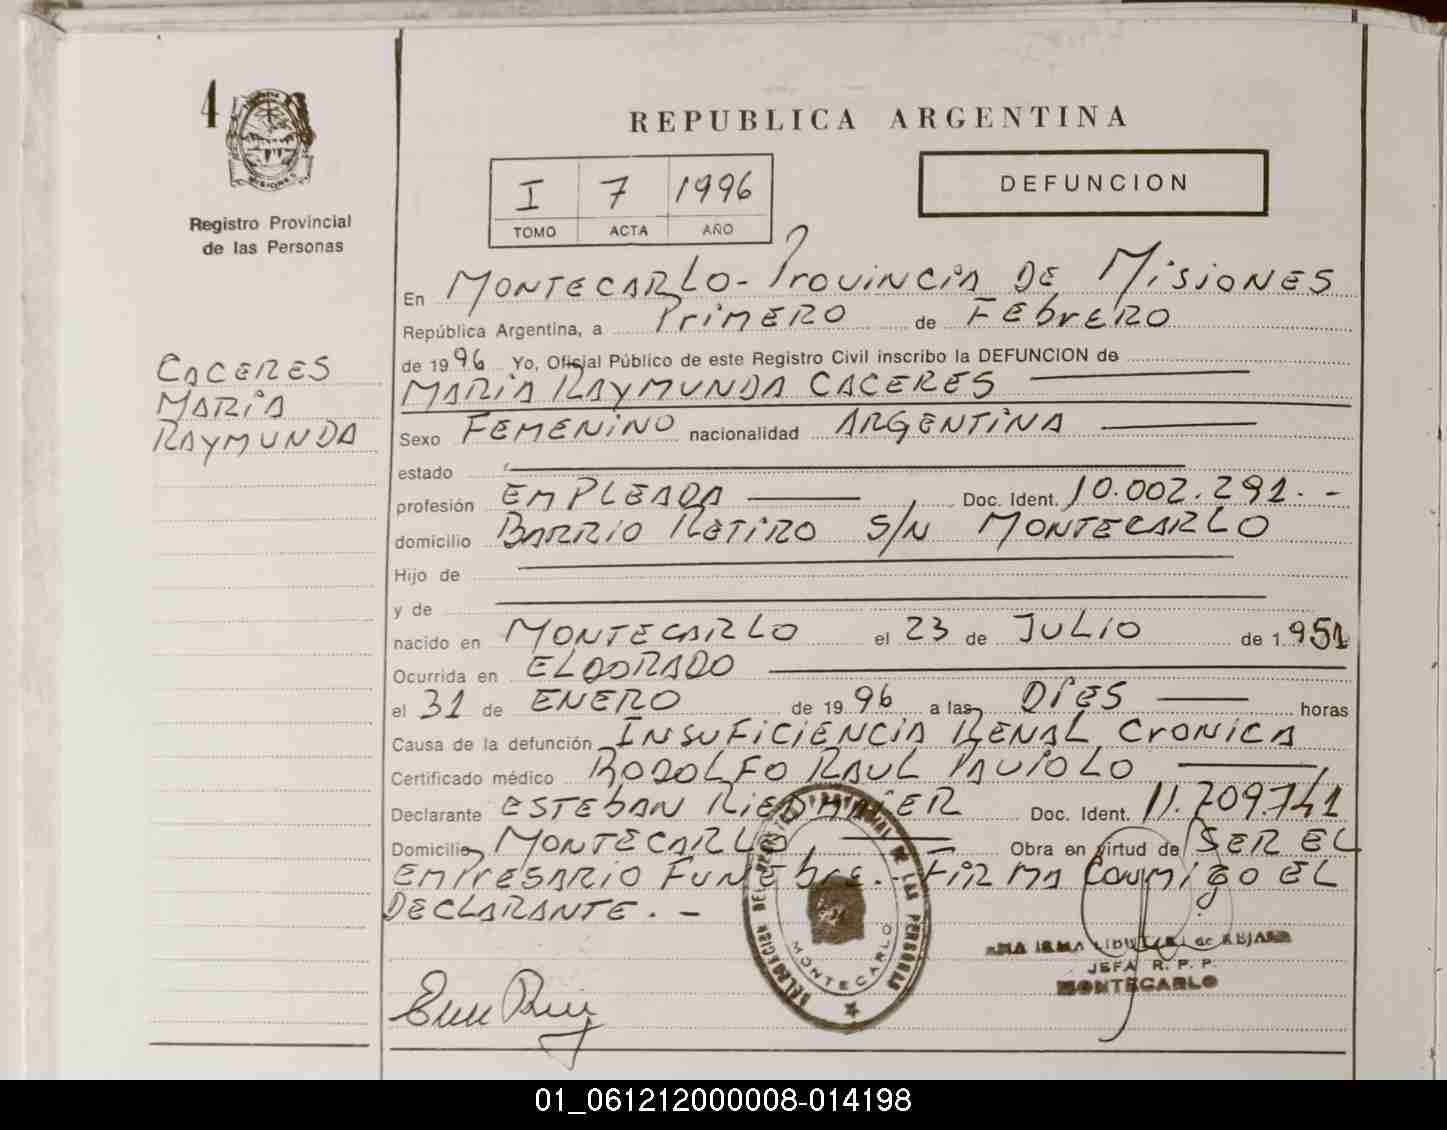 4
Registro Provincial
de las Personas
REPUBLICA ARGENTINA
I 7 1996
TOMO ACTA AÑO
DEFUNCION
En MONTECARLO - Provincia DE MisiONES
República Argentina, a PriMERO de FEbrERO
de 1996 Yo, Oficial Público de este Registro Civil inscribo la DEFUNCION de
MARIA RAYMUNDA CACERES
CACERES
MARIA
RAYMUNDA
Sexo FEMENINO nacionalidad ARGENTINA
estado
profesión EMPLEADA Doc. Ident. 10.002.291.-
domicilio BARRIO RETIRO S/N MONTECARLO
Hijo de
y de
nacido en MONTECARLO el 23 de JULIO de 1.951
Ocurrida en ELDORADO
el 31 de ENERO de 1996 a las DIES horas
Causa de la defunción INSUFICIENCIA RENAL CRONICA
Certificado médico RODOLFO RAUL
Declarante ESTEBAN RIEDMAIER Doc. Ident. 11.709.741
Domicilio MONTECARLO Obra en virtud de SER EL
EMPRESARIO FUNEbre. FIRMA CONMIGO EL
DECLARANTE. -
DELEGACION DEL REGISTRO PROVINCIAL DE LAS PERSONAS
MONTECARLO
ANA IRMA de
JEFA R. P. P.
MONTECARLO
01_061212000008-014198